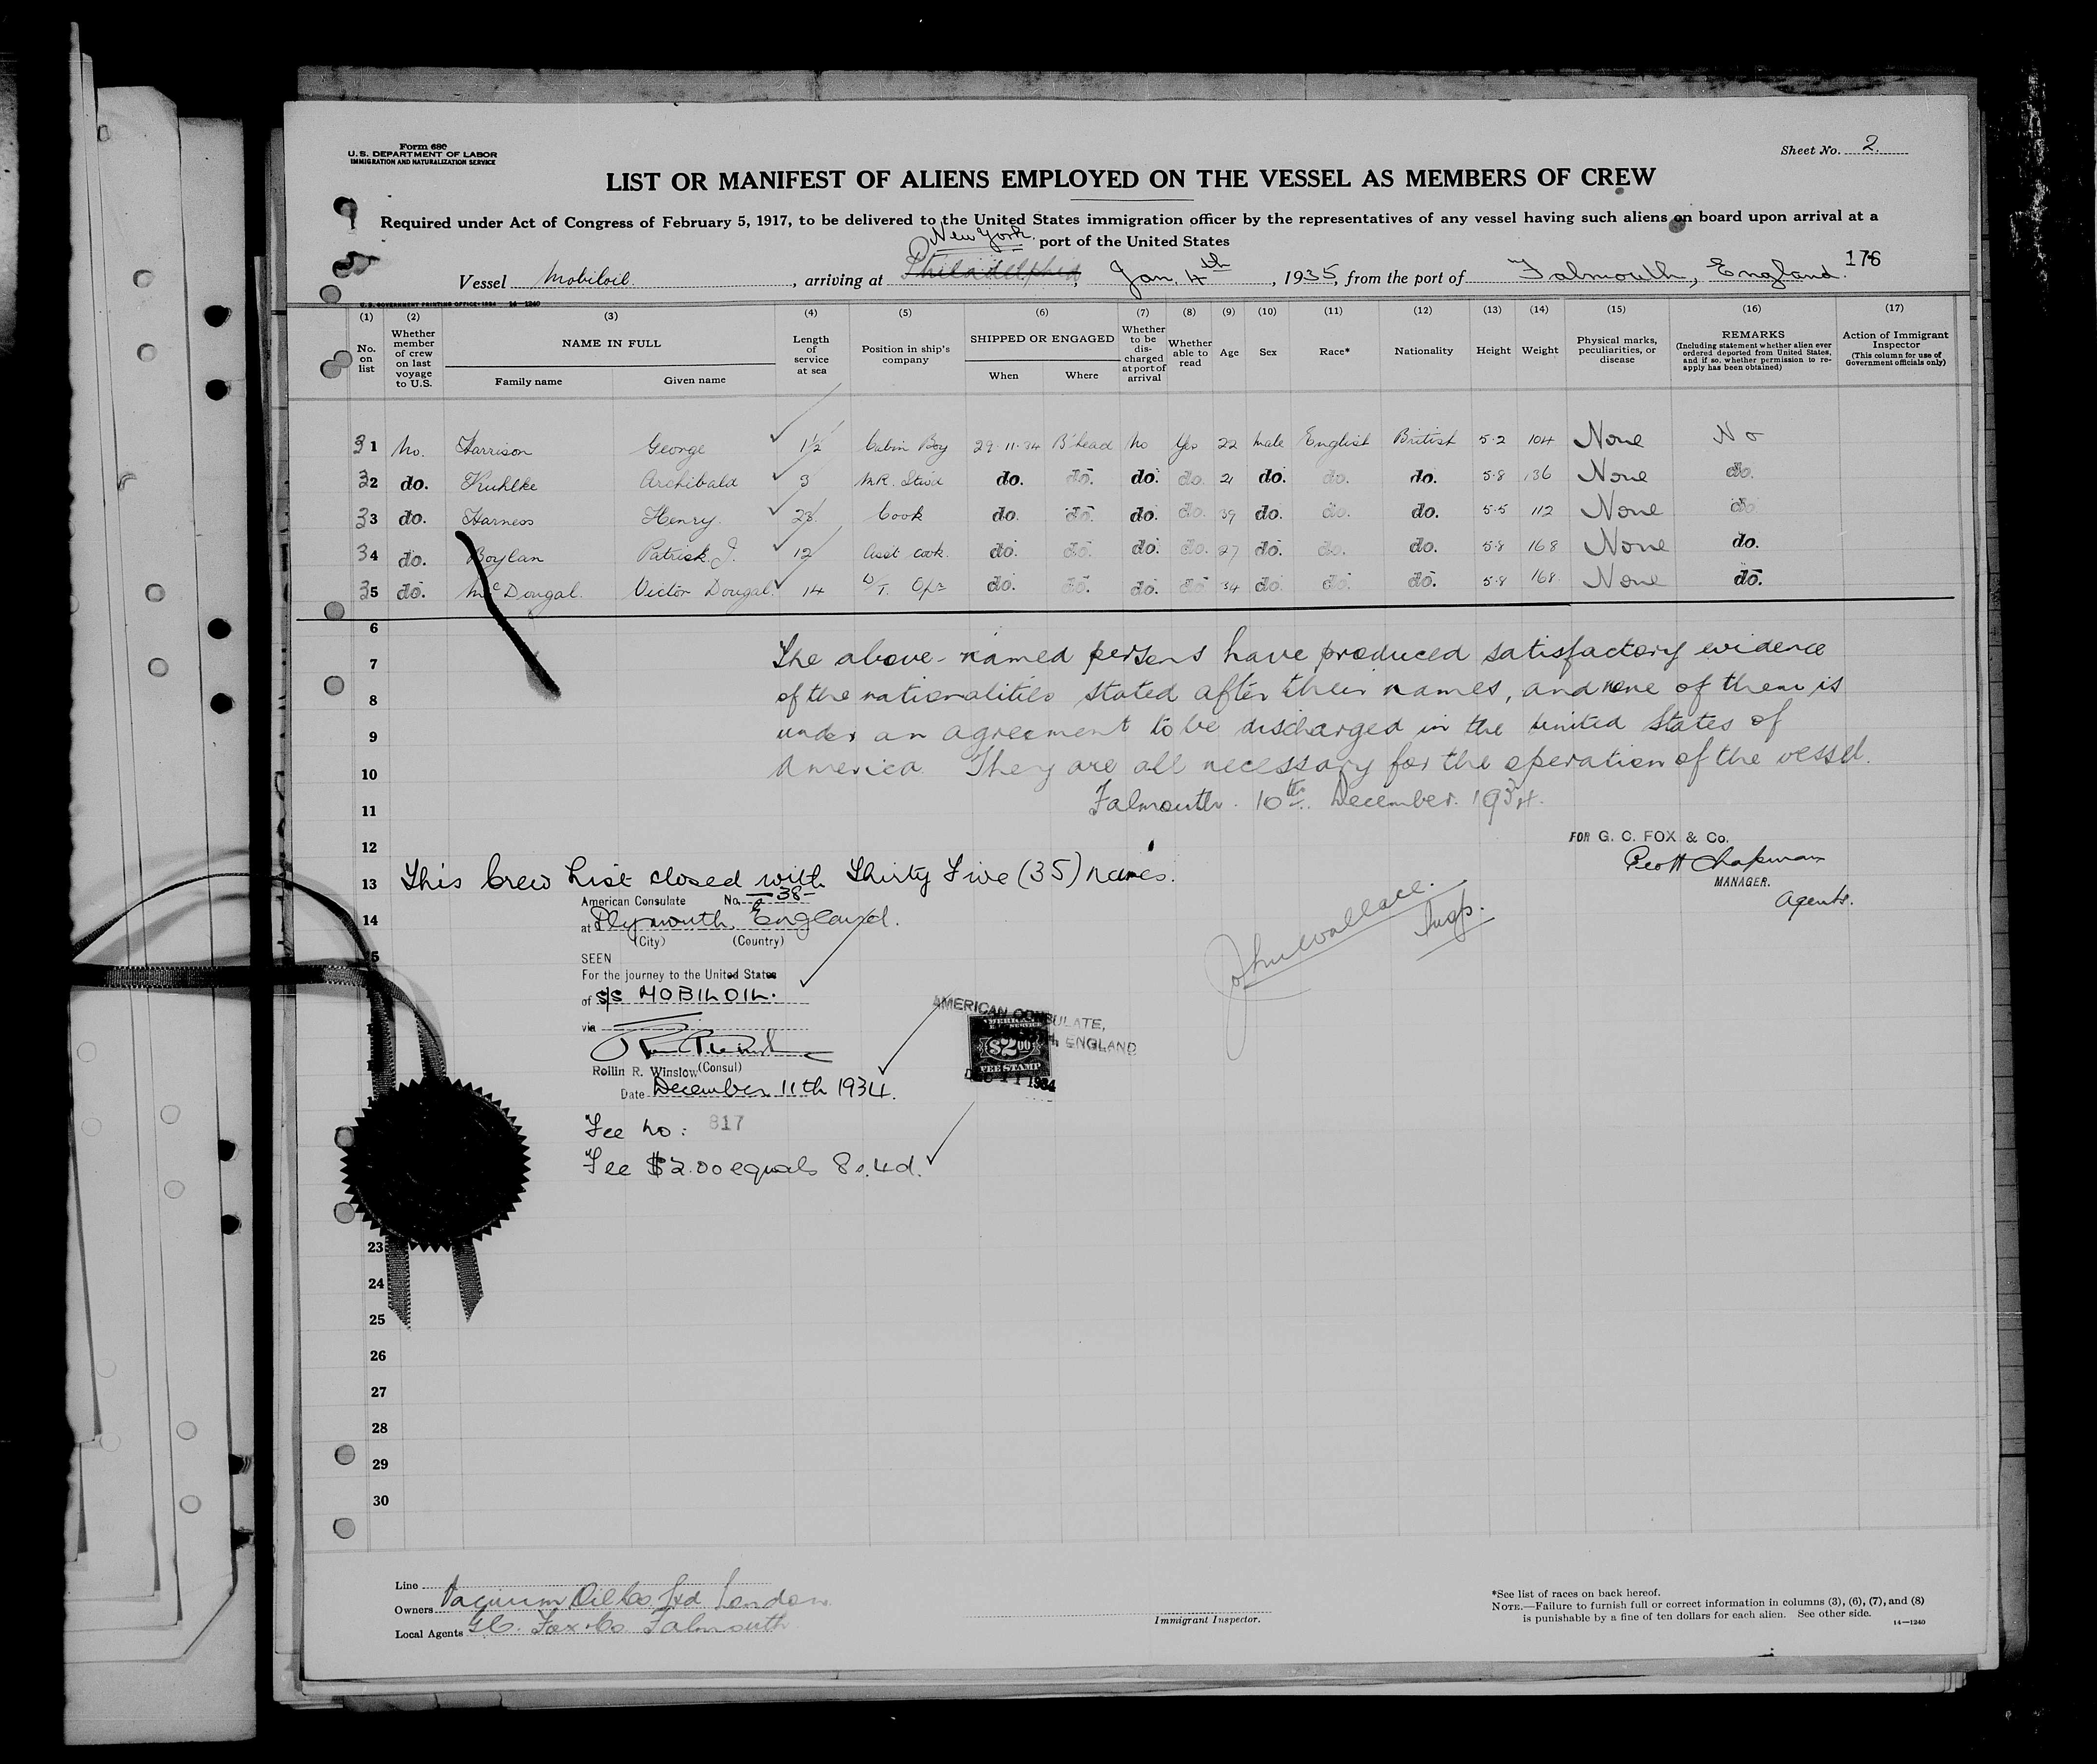 Form 680
U.S. DEPARTMENT OF LABOR
IMMIGRATION AND NATURALIZATION SERVICE
Sheet No. 2.
LIST OR MANIFEST OF ALIENS EMPLOYED ON THE VESSEL AS MEMBERS OF CREW
Required under Act of Congress of February 5, 1917, to be delivered to the United States immigration officer by the representatives of any vessel having such aliens on board upon arrival at a
port of the United States
New York
176
Vessel Mobiloil., arriving at Philadelphia, Jan. 4th, 1935, from the port of Falmouth, England.
U. S. GOVERNMENT PRINTING OFFICE: 1934 14—1240
(1) (2) (3) (4) (5) (6) (7) (8) (9) (10) (11) (12) (13) (14) (15) (16) (17)
No. on list
Whether member of crew on last voyage to U.S.
NAME IN FULL
Family name
Given name
Length of service at sea
Position in ship's company
SHIPPED OR ENGAGED
When
Where
Whether to be discharged at port of arrival
Whether able to read
Age
Sex
Race*
Nationality
Height
Weight
Physical marks, peculiarities, or disease
REMARKS
(Including statement whether alien ever ordered deported from United States, and if so, whether permission to reapply has been obtained)
Action of Immigrant Inspector
(This column for use of Government officials only)
31 No. Harrison George 1½ Cabin Boy 29.11.34 B'head No Yes 22 Male English British 5.2 104 None No
32 do. Kuhlke Archibald 3 MR. Stwd do. do. do. do. 21 do. do. do. 5.8 136 None do.
33 do. Harness Henry. 23 Cook do. do. do. do. 39 do. do. do. 5.5 112 None do
34 do. Boylan Patrick J. 12 Asst cook. do. do. do. do. 27 do. do. do. 5.8 168 None do.
35 do. McDougal. Victor Dougal. 14 W/T. Opr do. do. do. do 34 do. do. do. 5.8 168. None do.
6
7
8
9
10
11
12
13
14
The above-named persons have produced satisfactory evidence
of the nationalities stated after their names, and none of them is
under an agreement to be discharged in the United States of
America. They are all necessary for the operation of the vessel.
Falmouth. 10th. December. 1934.
FOR G. C. FOX & Co.
Chapman
MANAGER.
Agents.
This Crew List closed with Thirty Five (35) names.
American Consulate No. 38
at Plymouth, England.
(City) (Country)
SEEN
For the journey to the United States
of S/S MOBILOIL.
via
Rollin R. Winslow (Consul)
Date December 11th 1934.
Fee No: 817
Fee $2.00 equals 8s.4d.
AMERICAN CONSULATE,
ENGLAND
$2.00
FEE STAMP
DEC 11 1934
John Wallace.
Insp.
23
24
25
26
27
28
29
30
Line
Owners Vacuum Oil Co. Ltd London
Local Agents G.C. Fox & Co. Falmouth
Immigrant Inspector.
*See list of races on back hereof.
NOTE.—Failure to furnish full or correct information in columns (3), (6), (7), and (8)
is punishable by a fine of ten dollars for each alien. See other side.
14—1240